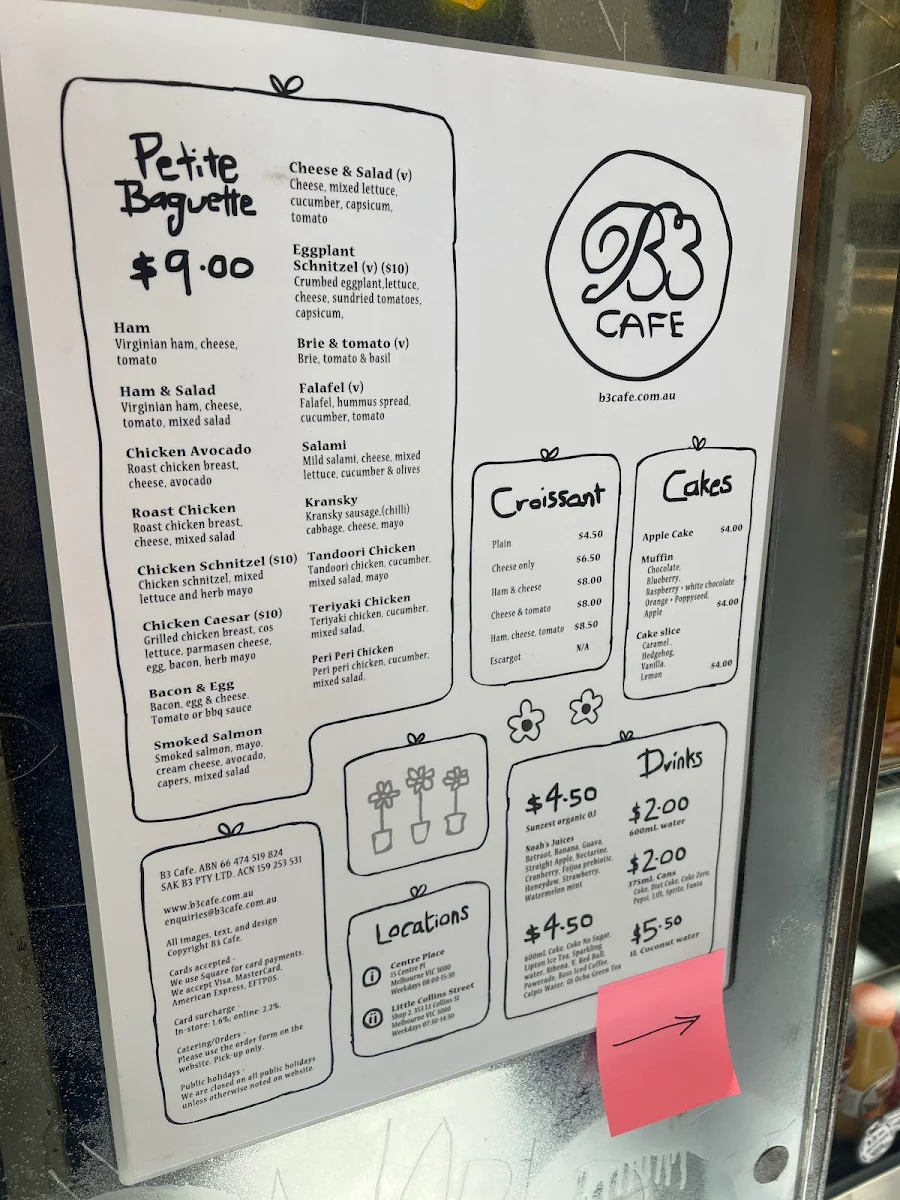 Petite
Baguette
$9.00
Ham
Virginian ham, cheese,
tomato
Ham & Salad
Virginian ham, cheese,
tomato, mixed salad
Chicken Avocado
Roast chicken breast,
cheese, avocado
Roast Chicken
Roast chicken breast,
cheese, mixed salad
Chicken Schnitzel ($10)
Chicken schnitzel, mixed
lettuce and herb mayo
Chicken Caesar ($10)
Grilled chicken breast, cos
lettuce, parmasen cheese,
egg, bacon, herb mayo
Bacon & Egg
Bacon, egg & cheese.
Tomato or bbq sauce
Smoked Salmon
Smoked salmon, mayo,
cream cheese, avocado,
capers, mixed salad
Cheese & Salad (v)
Cheese, mixed lettuce,
cucumber, capsicum,
tomato
Eggplant
Schnitzel (v) ($10)
Crumbed eggplant,lettuce,
cheese, sundried tomatoes,
capsicum,
Brie & tomato (v)
Brie, tomato & basil
Falafel (v)
Falafel, hummus spread,
cucumber, tomato
Salami
Mild salami, cheese, mixed
lettuce, cucumber & olives
Kransky
Kransky sausage,(chilli)
cabbage, cheese, mayo
Tandoori Chicken
Tandoori chicken, cucumber,
mixed salad, mayo
Teriyaki Chicken
Teriyaki chicken, cucumber,
mixed salad,
Peri Peri Chicken
Peri peri chicken, cucumber,
mixed salad,
B3
CAFE
b3cafe.com.au
Croissant
Plain $4.50
Cheese only $6.50
Ham & cheese $8.00
Cheese & tomato $8.00
Ham, cheese, tomato $8.50
Escargot N/A
Cakes
Apple Cake $4.00
Muffin
Chocolate,
Blueberry,
Raspberry + white chocolate
Orange + Poppyseed,
Apple $4.00
Cake slice
Caramel,
Hedgehog,
Vanilla,
Lemon $4.00
Drinks
$4.50
Sunzest organic OJ
Noah's Juices
Betroot, Banana, Guava,
Straight Apple, Nectarine,
Cranberry, Feijoa prebiotic,
Honeydew, Strawberry,
Watermelon mint
$4.50
600mL Coke, Coke No Sugar,
Lipton Ice Tea, Sparkling
water, Ribena, V, Red Bull,
Powerade, Boss Iced Coffee,
Calpis Water, Oi Ocha Green Tea
$2.00
600mL water
$2.00
375mL Cans
Coke, Diet Coke, Coke Zero,
Pepsi, Lift, Sprite, Fanta
$5.50
1L Coconut water
B3 Cafe. ABN 66 474 519 824
SAK B3 PTY LTD. ACN 159 253 531
www.b3cafe.com.au
enquiries@b3cafe.com.au
All images, text, and design
Copyright B3 Cafe.
Cards accepted -
We use Square for card payments.
We accept Visa, MasterCard,
American Express, EFTPOS.
Card surcharge -
In-store: 1.6%; online: 2.2%.
Catering/Orders -
Please use the order form on the
website. Pick-up only.
Public holidays -
We are closed on all public holidays
unless otherwise noted on website.
Locations
i
Centre Place
15 Centre Pl
Melbourne VIC 3000
Weekdays 08:00-15:30
ii
Little Collins Street
Shop 2, 353 Lt Collins St
Melbourne VIC 3000
Weekdays 07:30-14:30